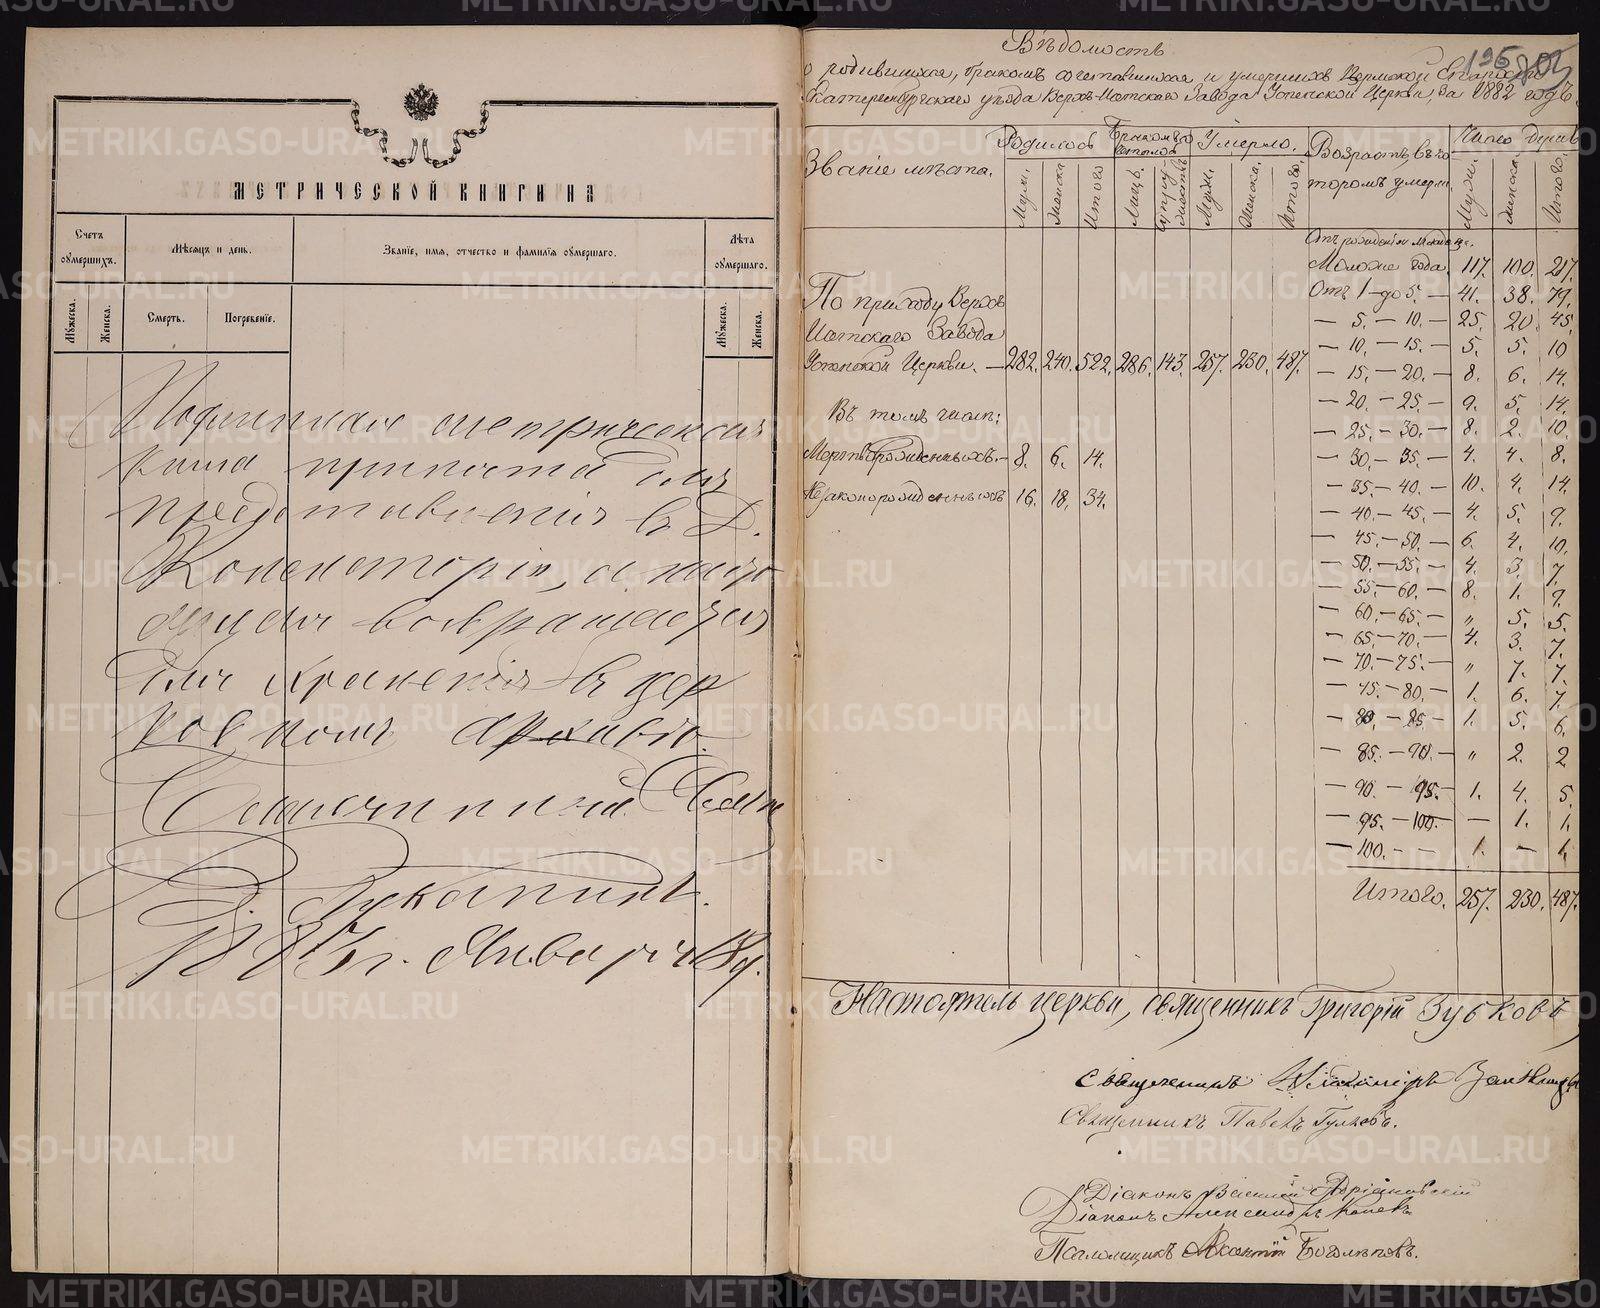 МЕТРИЧЕСКОЙ КНИГИ НА
Счетъ умершихъ.
Мѣсяцъ и день.
Званіе, имя, отчество и фамилія умершаго.
Лѣта умершаго.
Мужеска.
Женска.
Смерть.
Погребеніе.
Мужеска.
Женска.
метрическая
книга
представленія въ Д.
Консисторію, а
возвращается
для храненія въ цер
ковномъ архивѣ.
Января 18 д.
195
Вѣдомость
о родившихся, бракомъ сочетавшихся и умершихъ Пермской Епархіи
Екатеринбургскаго уѣзда Верхъ-Исетскаго Завода Успенской Церкви, за 1882 годъ.
Званіе мѣста.
Родилось
Бракомъ
Умерло.
Возрастъ, въ ко-
торомъ умерли.
Число душъ
Муж.
Женска
Итого
Лицъ.
Супружествъ
Муж.
Женска.
Итого.
Муж.
Женска.
Итого.
Отъ рожденія
Моложе года. 117. 100. 217.
Отъ 1 – до 5. – 41. 38. 79.
– 5. – 10. – 25. 20. 45.
– 10. – 15. – 5. 5. 10
– 15. – 20. – 8. 6. 14.
– 20. – 25. – 9. 5. 14.
– 25. – 30. – 8. 2. 10.
– 30. – 35. – 4. 4. 8.
– 35. – 40. – 10. 4. 14.
– 40. – 45. – 4. 5. 9.
– 45. – 50. – 6. 4. 10.
– 50. – 55. – 4. 3. 7.
– 55. – 60. – 8. 1. 9.
– 60. – 65. – „ 5. 5.
– 65. – 70. – 4. 3. 7.
– 70. – 75. – „ 7. 7.
– 75. – 80. – 1. 6. 7.
– 80. – 85 – 1. 5. 6.
– 85. – 90. – „ 2. 2
– 90. – 95. – 1. 4. 5.
– 95. – 100. – – 1. 1.
– 100. – – 1. – 1.
Итого. 257. 230. 487.
По приходу Верхъ
Исетскаго Завода
Успенской Церкви. – 282. 240. 522. 286. 143. 257. 230. 487.
Въ томъ числѣ:
Мертворожденныхъ. – 8. 6. 14.
Незаконорожденныхъ 16. 18. 34.
Настоятель церкви, священникъ Григорій Зубковъ
Священникъ Владиміръ
Священникъ Павелъ
Діаконъ Василій
Діаконъ Александръ
Псаломщикъ Боголѣповъ.
METRIKI.GASO-URAL.RU